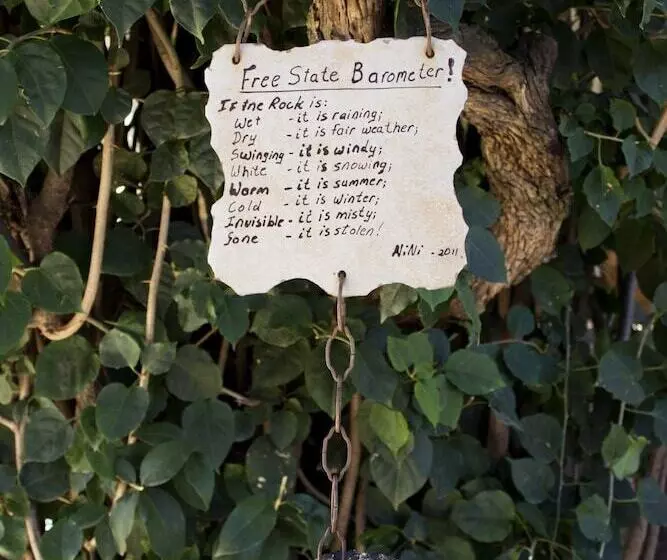 Free State Barometer!
If the Rock is:
Wet - it is raining;
Dry - it is fair weather;
Swinging - it is windy;
White - it is snowing;
Warm - it is summer;
Cold - it is winter;
Invisible - it is misty;
Gone - it is stolen!
NiNi - 2011